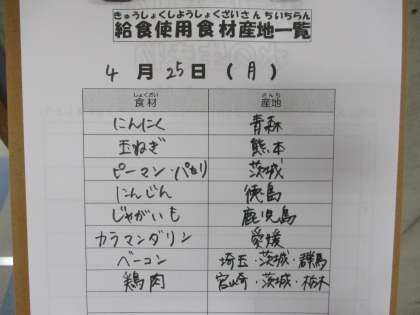 きゅうしょくしようしょくざいさんちいちらん
給食使用食材産地一覧
4月25日(月)
しょくざい さんち
食材 産地
にんにく 青森
玉ねぎ 熊本
ピーマン・パセリ 茨城
にんじん 徳島
じゃがいも 鹿児島
カラマンダリン 愛媛
ベーコン 埼玉・茨城・群馬
鶏肉 宮崎・茨城・栃木